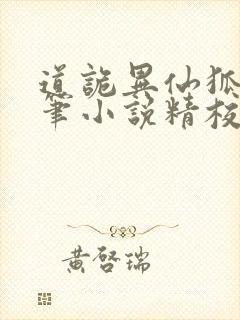 道詭異仙狐
筆小說精校
黃啓瑞